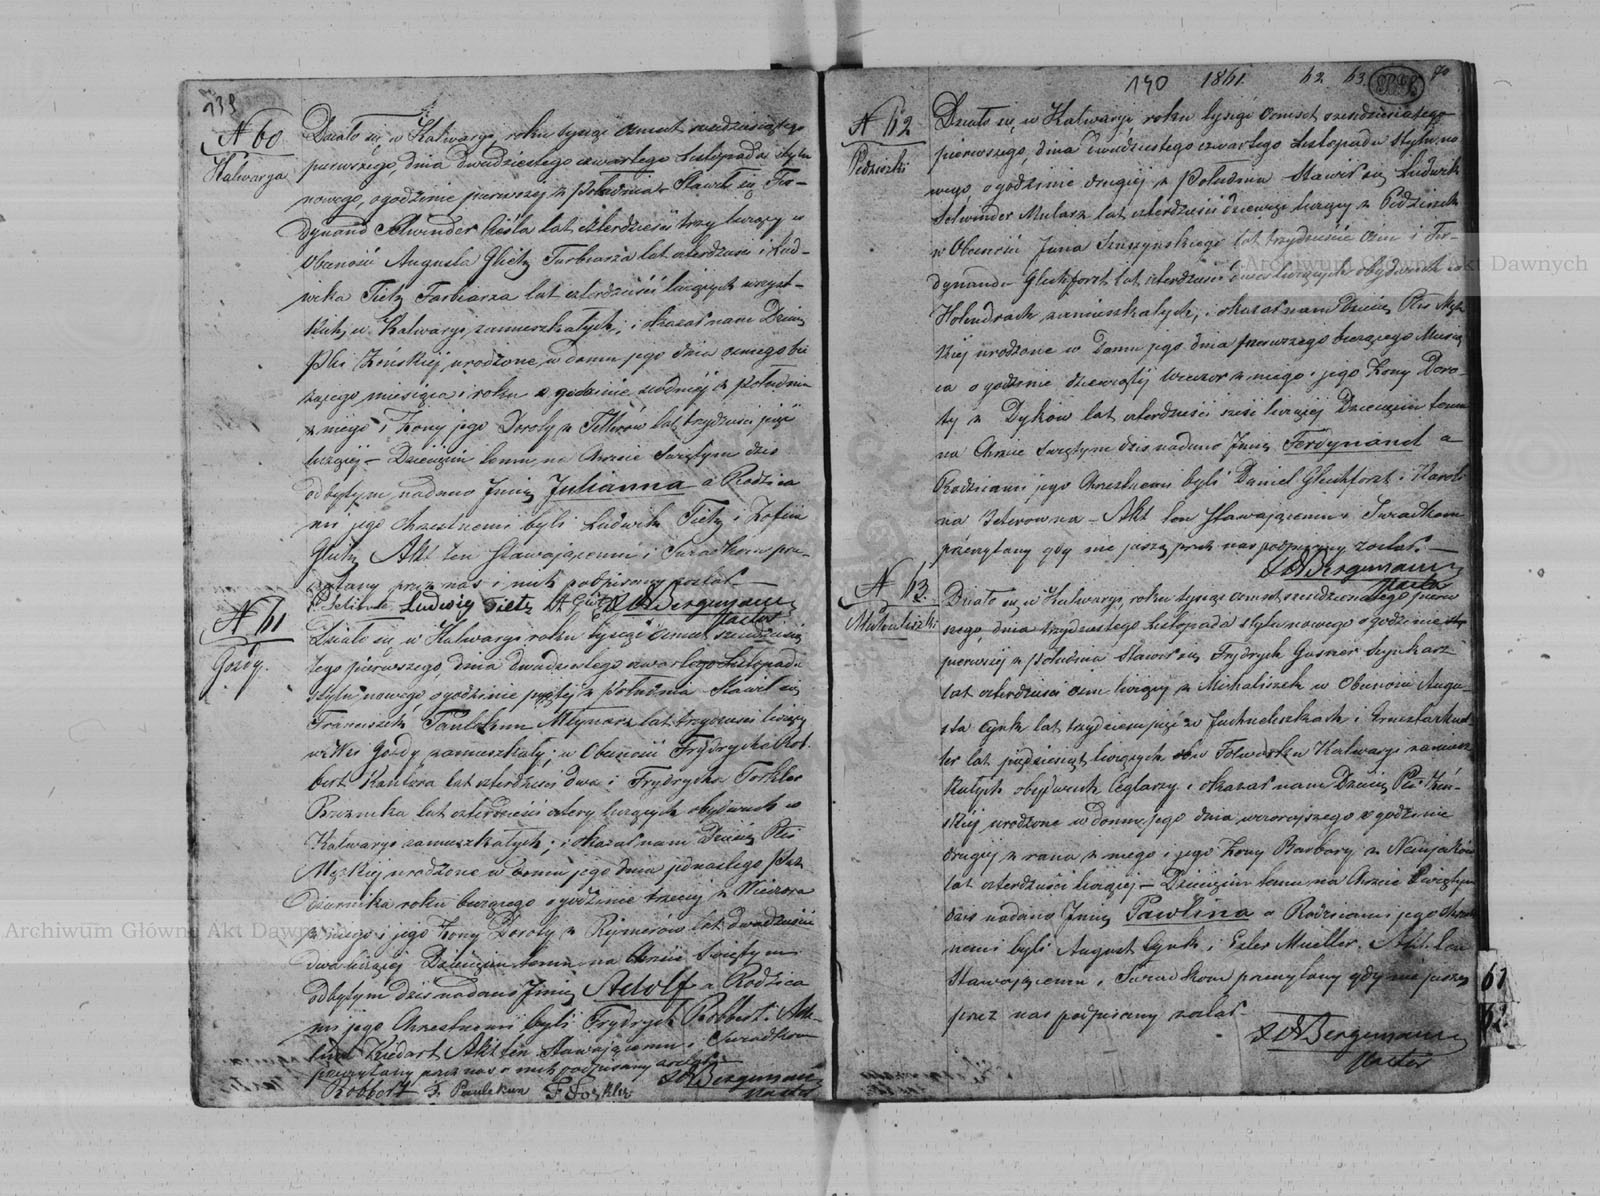 139
N 60
Kalwarya
Działo się w Kalwaryi roku tysiąc ośmset sześdziesiątego
pierwszego, dnia dwudziestego czwartego Listopada stylu
nowego, o godzinie pierwszej z południa. Stawił się Fer-
dynand Selwinder Cieśla lat czterdzieści trzy liczący w
Obecności Augusta Glietz Farbiarza lat czterdzieści i Lud-
wika Tietz Farbiarza lat czterdzieści liczących wszyst-
kich w Kalwaryi zamieszkałych; i okazał nam Dziecię
Płci Żeńskiej urodzone w domu jego dnia ósmego bie
żącego miesiąca i roku o godzinie siódmej z południa
z niego i Żony jego Doroty z lat trzydzieści pięć
liczącej – Dziecięciu temu na Chrzcie Świętym dziś
odbytym nadano Imię Julianna a Rodzica
mi jego chrzestnemi byli Ludwik Tietz i Zofia
Glietz Akt ten Stawającemu i Świadkom prze-
czytany przez nas i nich podpisany został —
Ludwig Tietz A. Bergmann
Pastor
N 61
Gozdy.
Działo się w Kalwaryi roku tysiąc ośmset sześdziesią
tego pierwszego, dnia dwudziestego czwartego Listopada
stylu nowego o godzinie piątej z południa Stawił się
Franciszek Paulekun Młynarz lat trzydzieści liczący
w Wsi Gozdy zamieszkały; w Obecności Frydrycha Rob-
bert Kantora lat czterdzieści dwa i Frydrycha Forkler
lat czterdzieści cztery liczących obydwóch w
Kalwaryi zamieszkałych; i okazał nam Dziecię Płci
Męzkiej urodzone w domu jego dnia jednastego Paź
dziernika roku bieżącego o godzinie trzeciej z Wieczora
z niego i jego Żony Doroty z Rymerów lat dwadzieście
dwa liczącej Dziecięciu temu na Chrzcie Świętym
odbytym dziś nadano Imię Adolf a Rodzica
mi jego Chrzestnemi byli Frydrych Robbert i
Akt ten Stawającemu i Świadkom
przeczytany przez nas i nich podpisany został
A. Bergmann
Robbert F. Paulekun Pastor
140 1861. 62. 63. 70
N 62
Pedziszki
Działo się w Kalwaryi roku tysiąc ośmset sześdziesiątego
pierwszego, dnia dwudziestego czwartego Listopada stylu no-
wego, o godzinie drugiej z południa Stawił się Ludwik
Selwinder Mularz lat czterdzieści dziewięć liczący z Pedziszek
w Obecności Jana Szuszyńskiego lat trzydzieście ośm i Fer-
dynanda Gleichforst lat czterdzieści dwa liczących obydwóch w
Holendrach zamieszkałych, i okazał nam Dziecię Płci Męz-
kiej urodzone w Domu jego dnia pierwszego bieżącego Miesią
ca o godzinie dziewiątej wieczor z niego i jego Żony Doro-
ty z Dyków lat czterdzieści sześć liczącej Dziecięciu temu
na Chrzcie Świętym dziś nadano Imię Ferdynand a
Rodzicami jego Chrzestnemi byli Daniel Gleichforst i Karoli
na Akt ten Stawającemu i Świadkom
przeczytany gdy nie piszą przez nas podpisany został. —
A. Bergmann
Pastor
N 63.
Michaliszki
Działo się w Kalwaryi, roku tysiąc ośmset sześdziesiątego pierw
szego, dnia trzydziestego Listopada stylu nowego o godzinie
pierwszej z południa Stawił się Frydrych Gusner Szynkarz
lat czterdzieści ośm liczący z Michaliszek w Obecności Augu-
sta Cynk lat trzydzieści pięć w Juchneliszkach i Ernesta Muel
ler lat piędziesiąt liczących w Folwarku Kalwaryi zamiesz
kałych obydwóch Ceglarzy i okazał nam Dziecię Płci Żeń-
skiej urodzone w domu jego dnia wczorajszego o godzinie
drugiej z rana z niego i jego Żony Barbary z
lat czterdzieści liczącej – Dziecięciu temu na Chrzcie Świętym
dziś nadano Imię Pawlina a Rodzicami jego Chrzest
nemi byli August Cynk i Ester Mueller. Akt ten
Stawającemu i Świadkom przeczytany gdy nie piszą
przez nas podpisany został.
A. Bergmann
Pastor
61
62
Archiwum Główne Akt Dawnych
Archiwum Główne Akt Dawnych